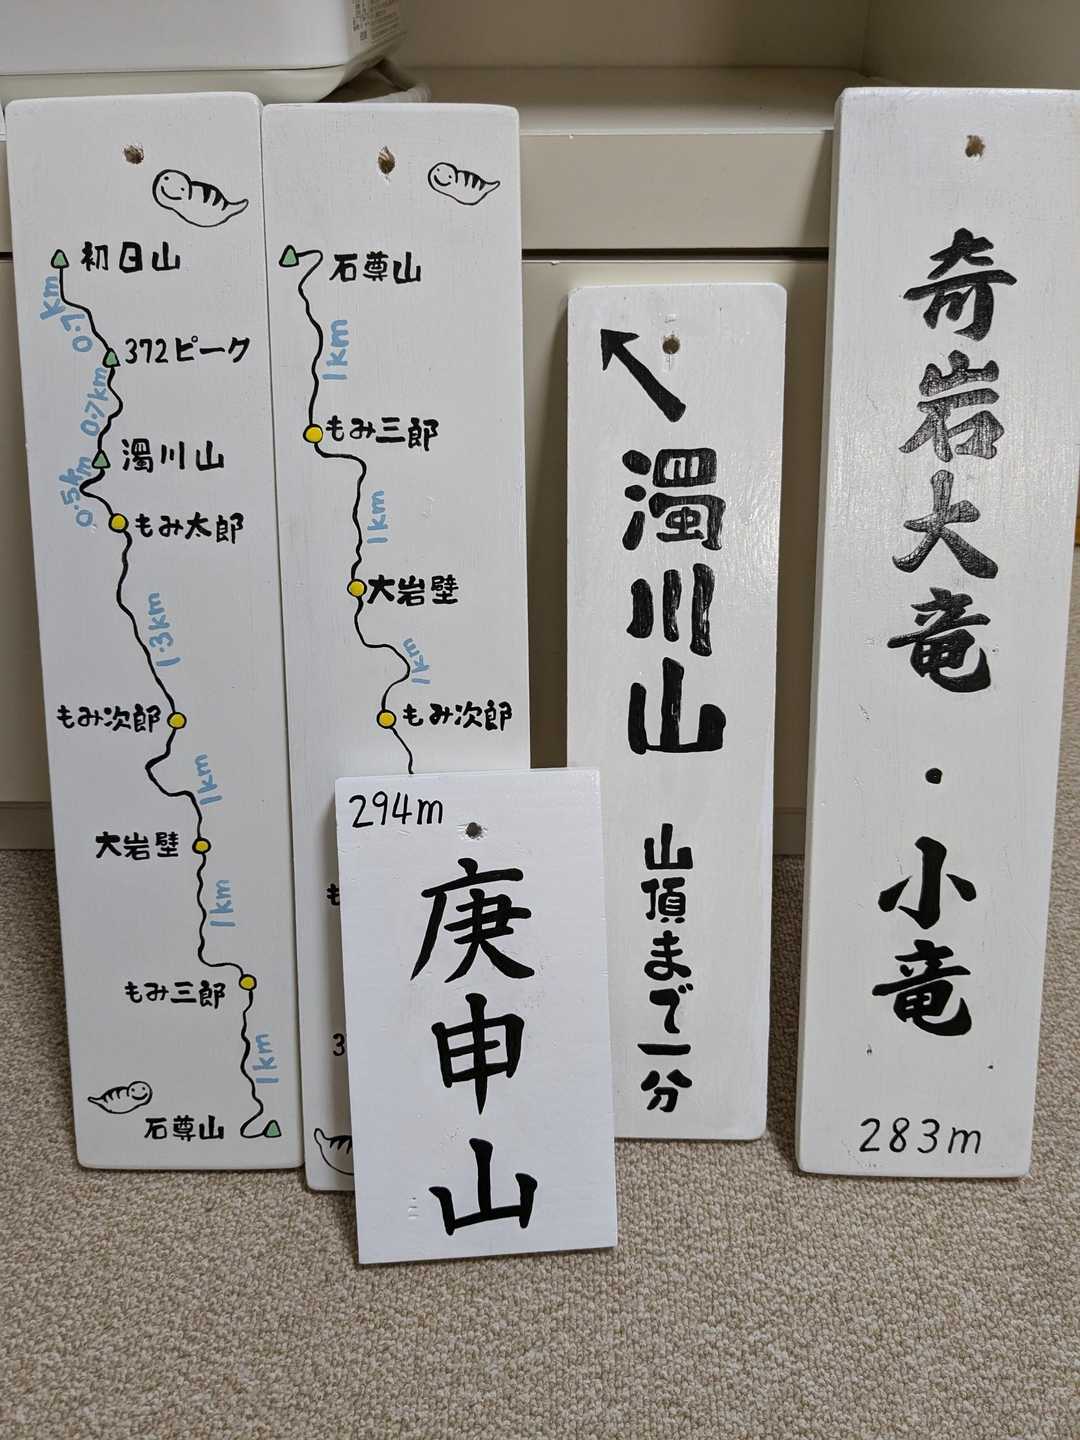 初日山
0.7km
372ピーク
0.7km
濁川山
0.5km
もみ太郎
1.3km
もみ次郎
1km
大岩壁
1km
もみ三郎
1km
石尊山
石尊山
1km
もみ三郎
1km
大岩壁
1km
もみ次郎
も
3
294m
庚申山
濁川山
山頂まで一分
奇岩大竜・小竜
283m